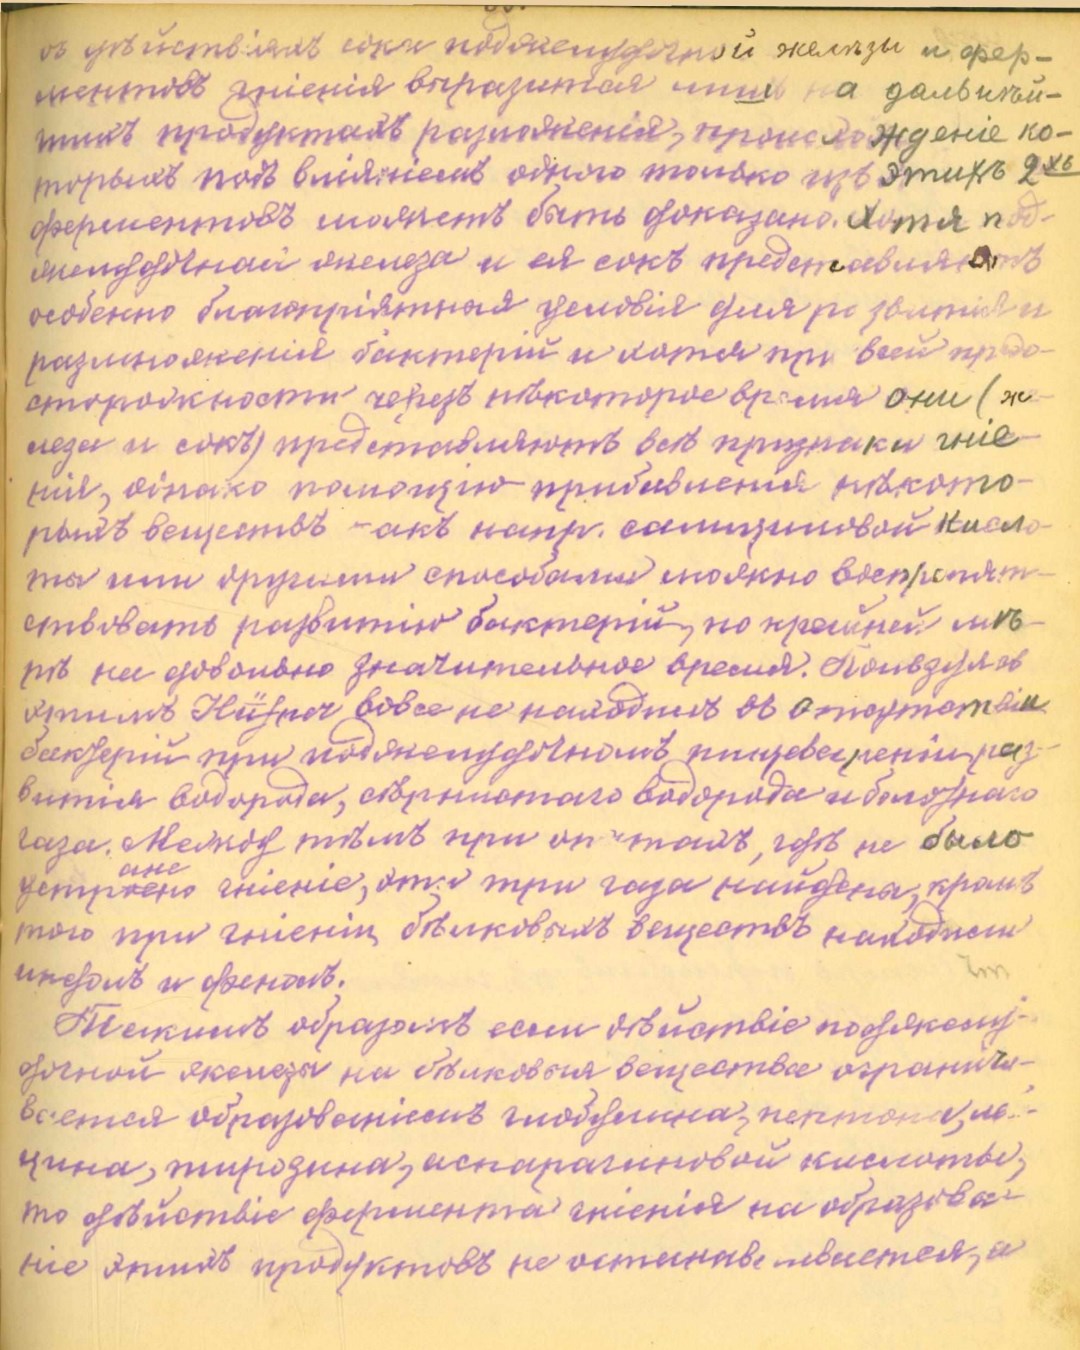 въ дѣйствіяхъ сока поджелудочной железы и фер-
ментовъ гніенія выразится лишь на дальнѣй-
шихъ продуктахъ разложенія, происхожденіе ко-
торыхъ подъ вліяніемъ одного только изъ этихъ 2хъ
ферментовъ можетъ быть доказано. Хотя под-
желудочная железа и ея сокъ представляютъ
особенно благопріятныя условія для развитія и
размноженія бактерій и хотя при всей предо-
сторожности черезъ нѣкоторое время они (же-
леза и сокъ) представляютъ всѣ признаки гніе-
нія, однако помощію прибавленія нѣкото-
рыхъ веществъ такъ напр. салициловой кисло-
ты или другими способами можно воспрепят-
ствовать развитію бактерій, по крайней мѣ-
рѣ на довольно значительное время. Пользуясь
этимъ Hüfner вовсе не находилъ въ отсутствіи
бактерій при поджелудочномъ пищевареніи раз-
витія водорода, сѣрнистаго водорода и болотнаго
газа. Между тѣмъ при опытахъ, гдѣ не было
устранено гніеніе, эти три газа найдены, кромѣ
того при гніеніи бѣлковыхъ веществъ находили
индолъ и фенолъ.
Такимъ образомъ если дѣйствіе поджелу-
дочной железы на бѣлковыя вещества ограничи-
вается образованіемъ глобулина, пептона, лей-
цина, тирозина, аспарагиновой кислоты,
то дѣйствіе фермента гніенія на образова-
ніе этихъ продуктовъ не останавливается, а